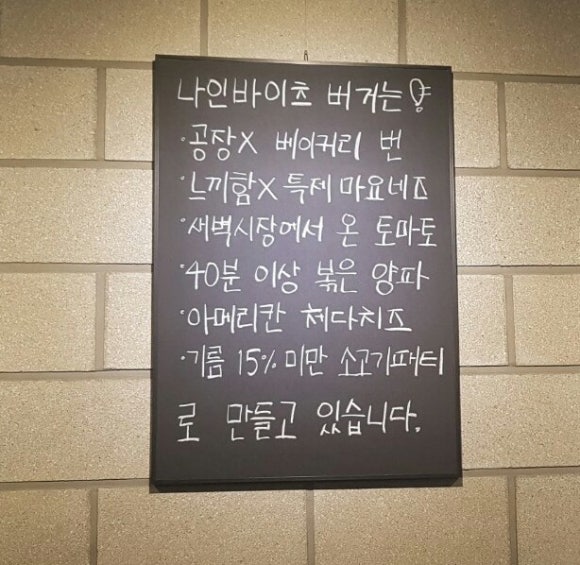 나인바이츠 버거는
·공장X 베이커리 번
·느끼함X 특제 마요네즈
·새벽시장에서 온 토마토
·40분 이상 볶은 양파
·아메리칸 체다치즈
·기름 15% 미만 소고기패티
로 만들고 있습니다.